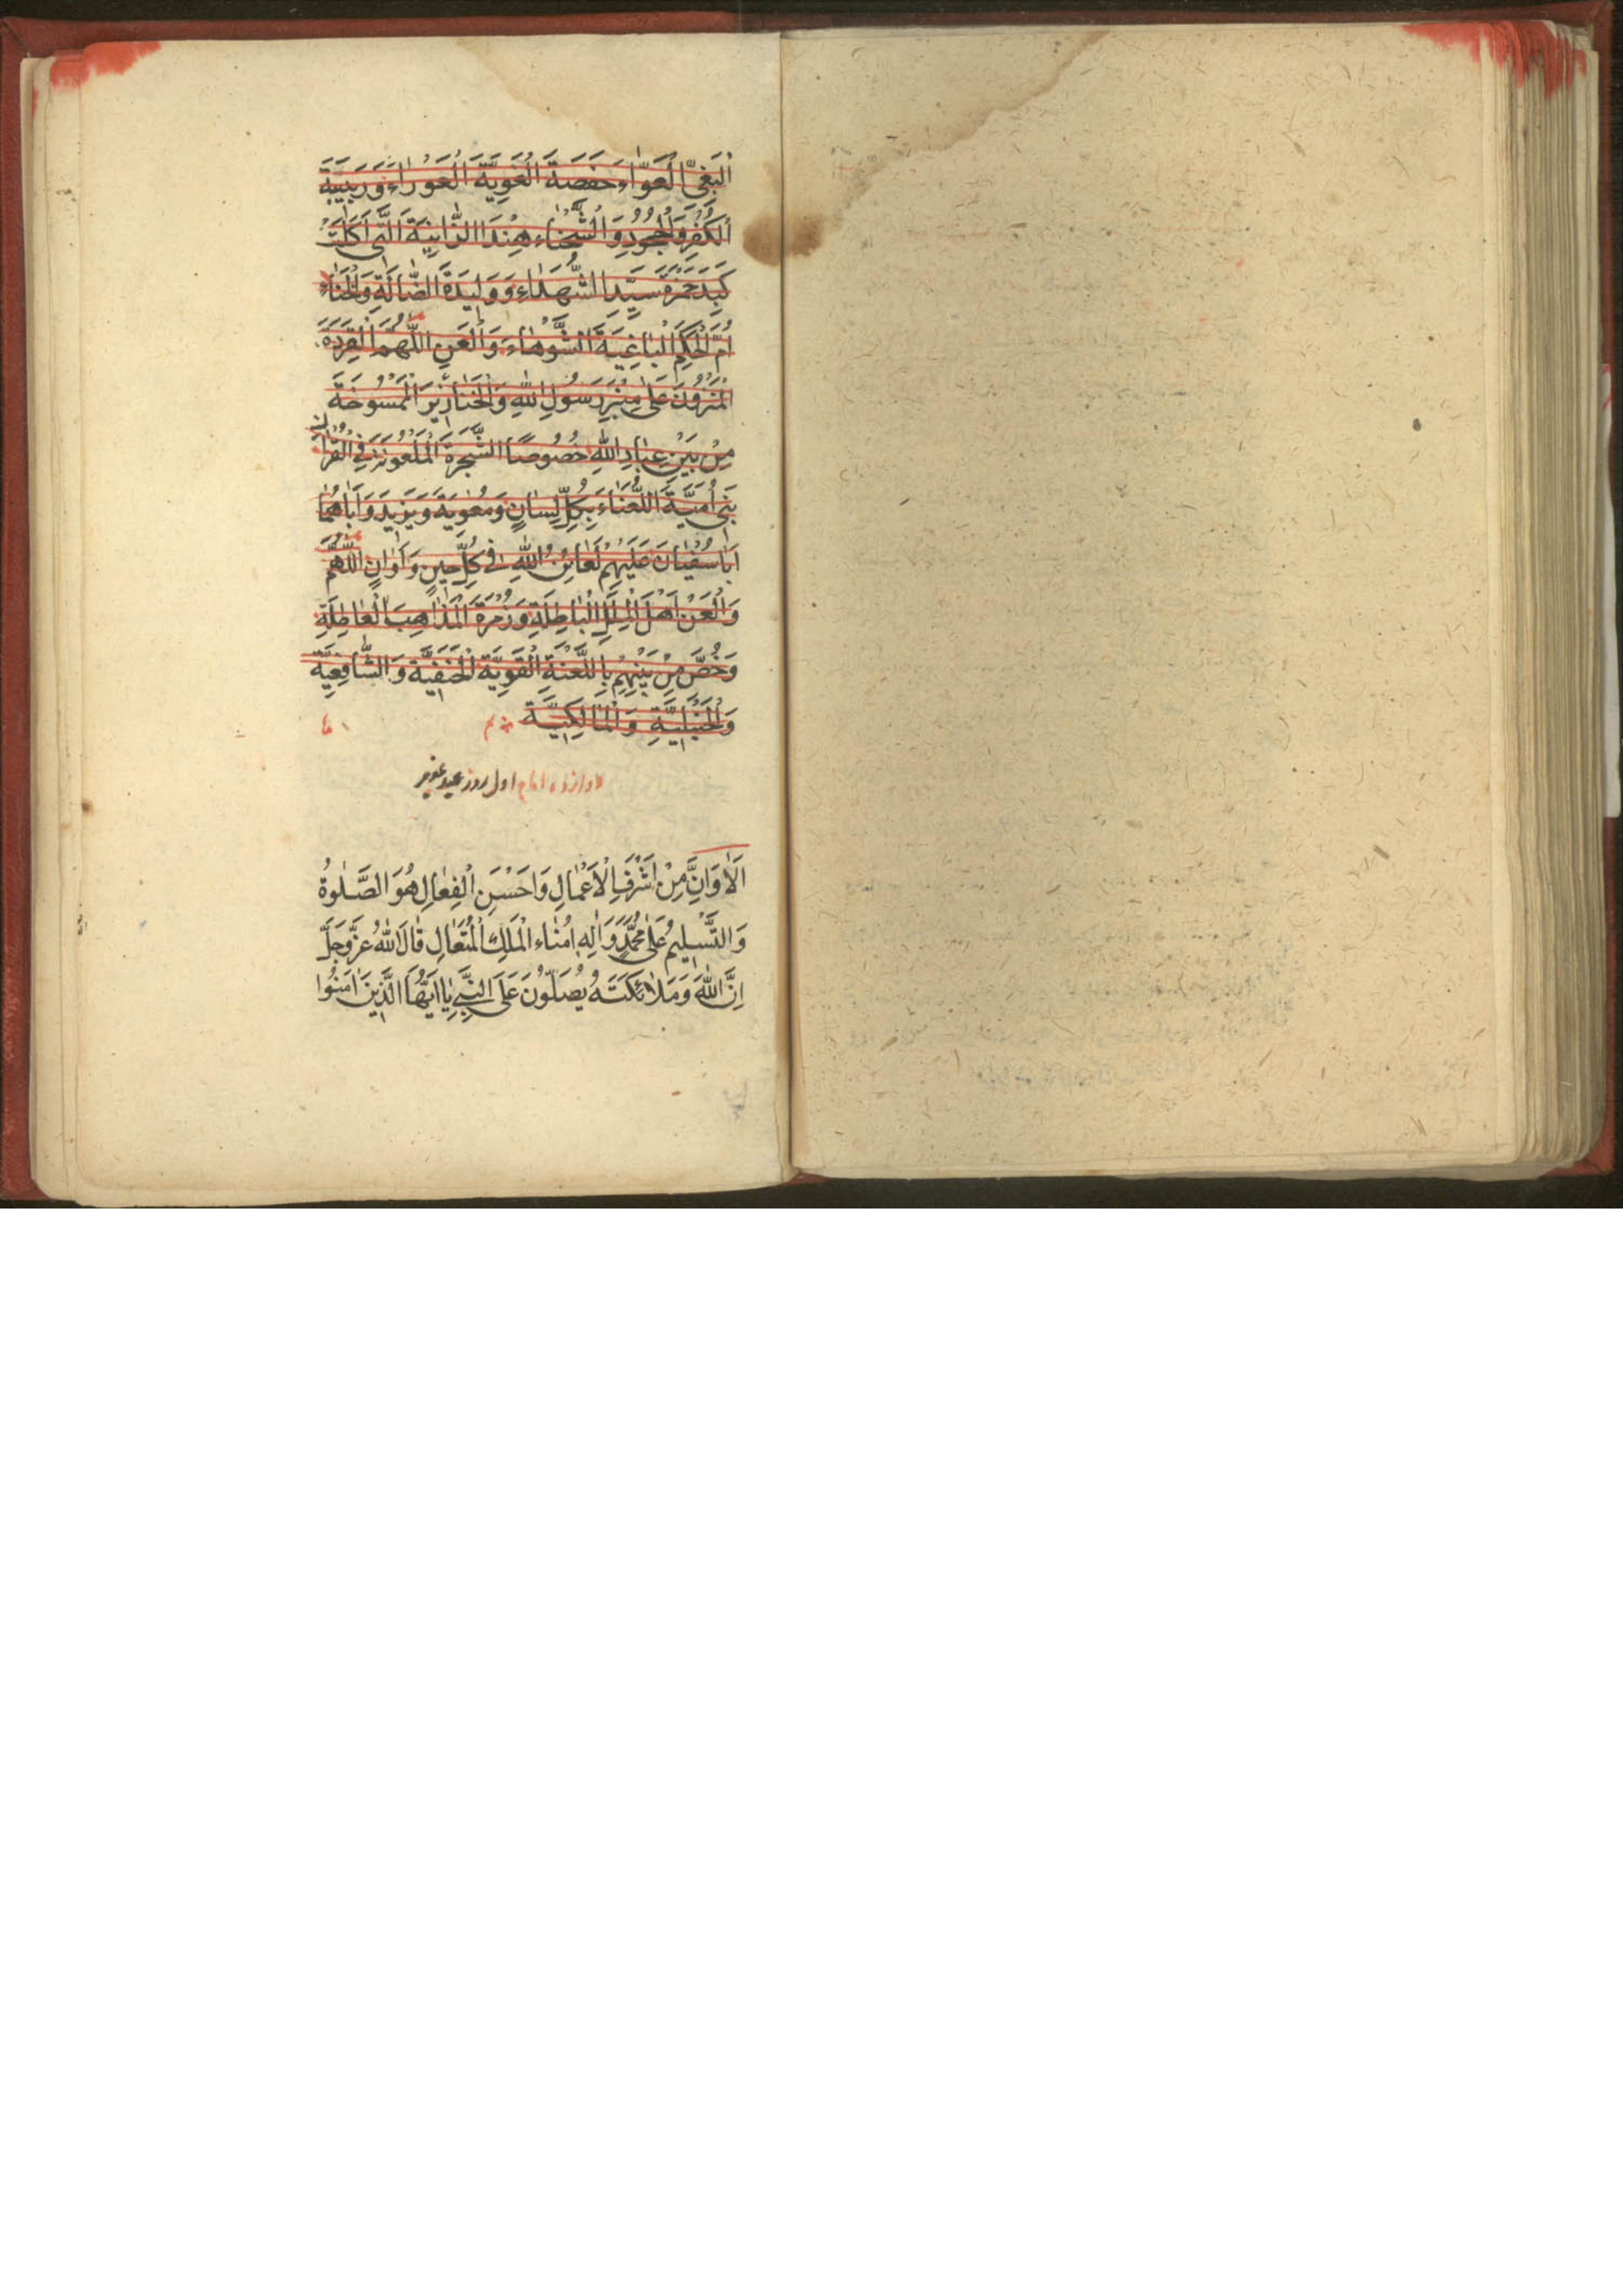 اَلْبَغِیِّ الْعَوّٰاءِ حَفَصَةَ الْغَوِیَّةَ الْعَوْرٰاءَ وَرَبِیبَةَ
اَلْکُفْرِ وَالْجُحُودِ وَالْشَّحْنٰاءِ هِنْدَا الزّٰانِیَةَ الَّتِی اَکَلَتْ
کَبِدَ حَمْزَةَ سَیِّدِ الشُّهَدٰاءِ وَ وَلِیدَةَ الضّٰالَةِ وَالْخَنٰاءِ
اُمَّ الْحَکَمِ الْبٰاغِیَةَ الشَّوْهٰاءَ وَالْعَنِ اللّٰهُمَّ الْقِرَدَةَ
عَلٰی مِنْبَرِ رَسُولِ اللّٰهِ وَالْخَنٰازِیرَ الْمَمْسُوخَةَ
مِنْ بَیْنِ عِبٰادِ اللّٰهِ خُصُوصًا الشَّجَرَةَ الْمَلْعُونَةَ فِی الْقُرْاٰنِ
بَنِی اُمَیَّةَ اللُّعَنٰاءَ بِکُلِّ لِسٰانٍ وَ مُعٰوِیَةَ وَ یَزِیدَ وَ اَبٰاهُمٰا
اَبٰا سُفْیٰانَ عَلَیْهِمْ لَعٰائِنُ اللّٰهِ فِی کُلِّ حِینٍ وَ اَوٰانٍ اللّٰهُمَّ
وَالْعَنْ اَهْلَ الْمِلَلِ الْبٰاطِلَةِ وَ زُمْرَةَ الْمَذٰاهِبِ الْعٰاطِلَةِ
وَ خُصَّ مِنْ بَیْنِهِمْ بِاللَّعْنَةِ الْقَوِیَّةِ الْحَنَفِیَّةَ وَ الشّٰافِعِیَّةَ
وَالْحَنْبَلِیَّةِ وَالْمٰالِکِیَّةَ
اول روز عید غدیر
اَلاٰ وَ اِنَّ مِنْ اَشْرَفِ الْاَعْمٰالِ وَ اَحْسَنِ الْفِعٰالِ هُوَ الصَّلٰوةُ
وَ التَّسْلِیمُ عَلٰی مُحَمَّدٍ وَ اٰلِهِ اُمَنٰاءِ الْمَلِکِ الْمُتَعٰالِ قٰالَ اللّٰهُ عَزَّ وَ جَلَّ
اِنَّ اللّٰهَ وَ مَلاٰئِکَتَهُ یُصَلُّونَ عَلَی النَّبِیِّ یٰا اَیُّهَا الَّذِینَ اٰمَنُوا